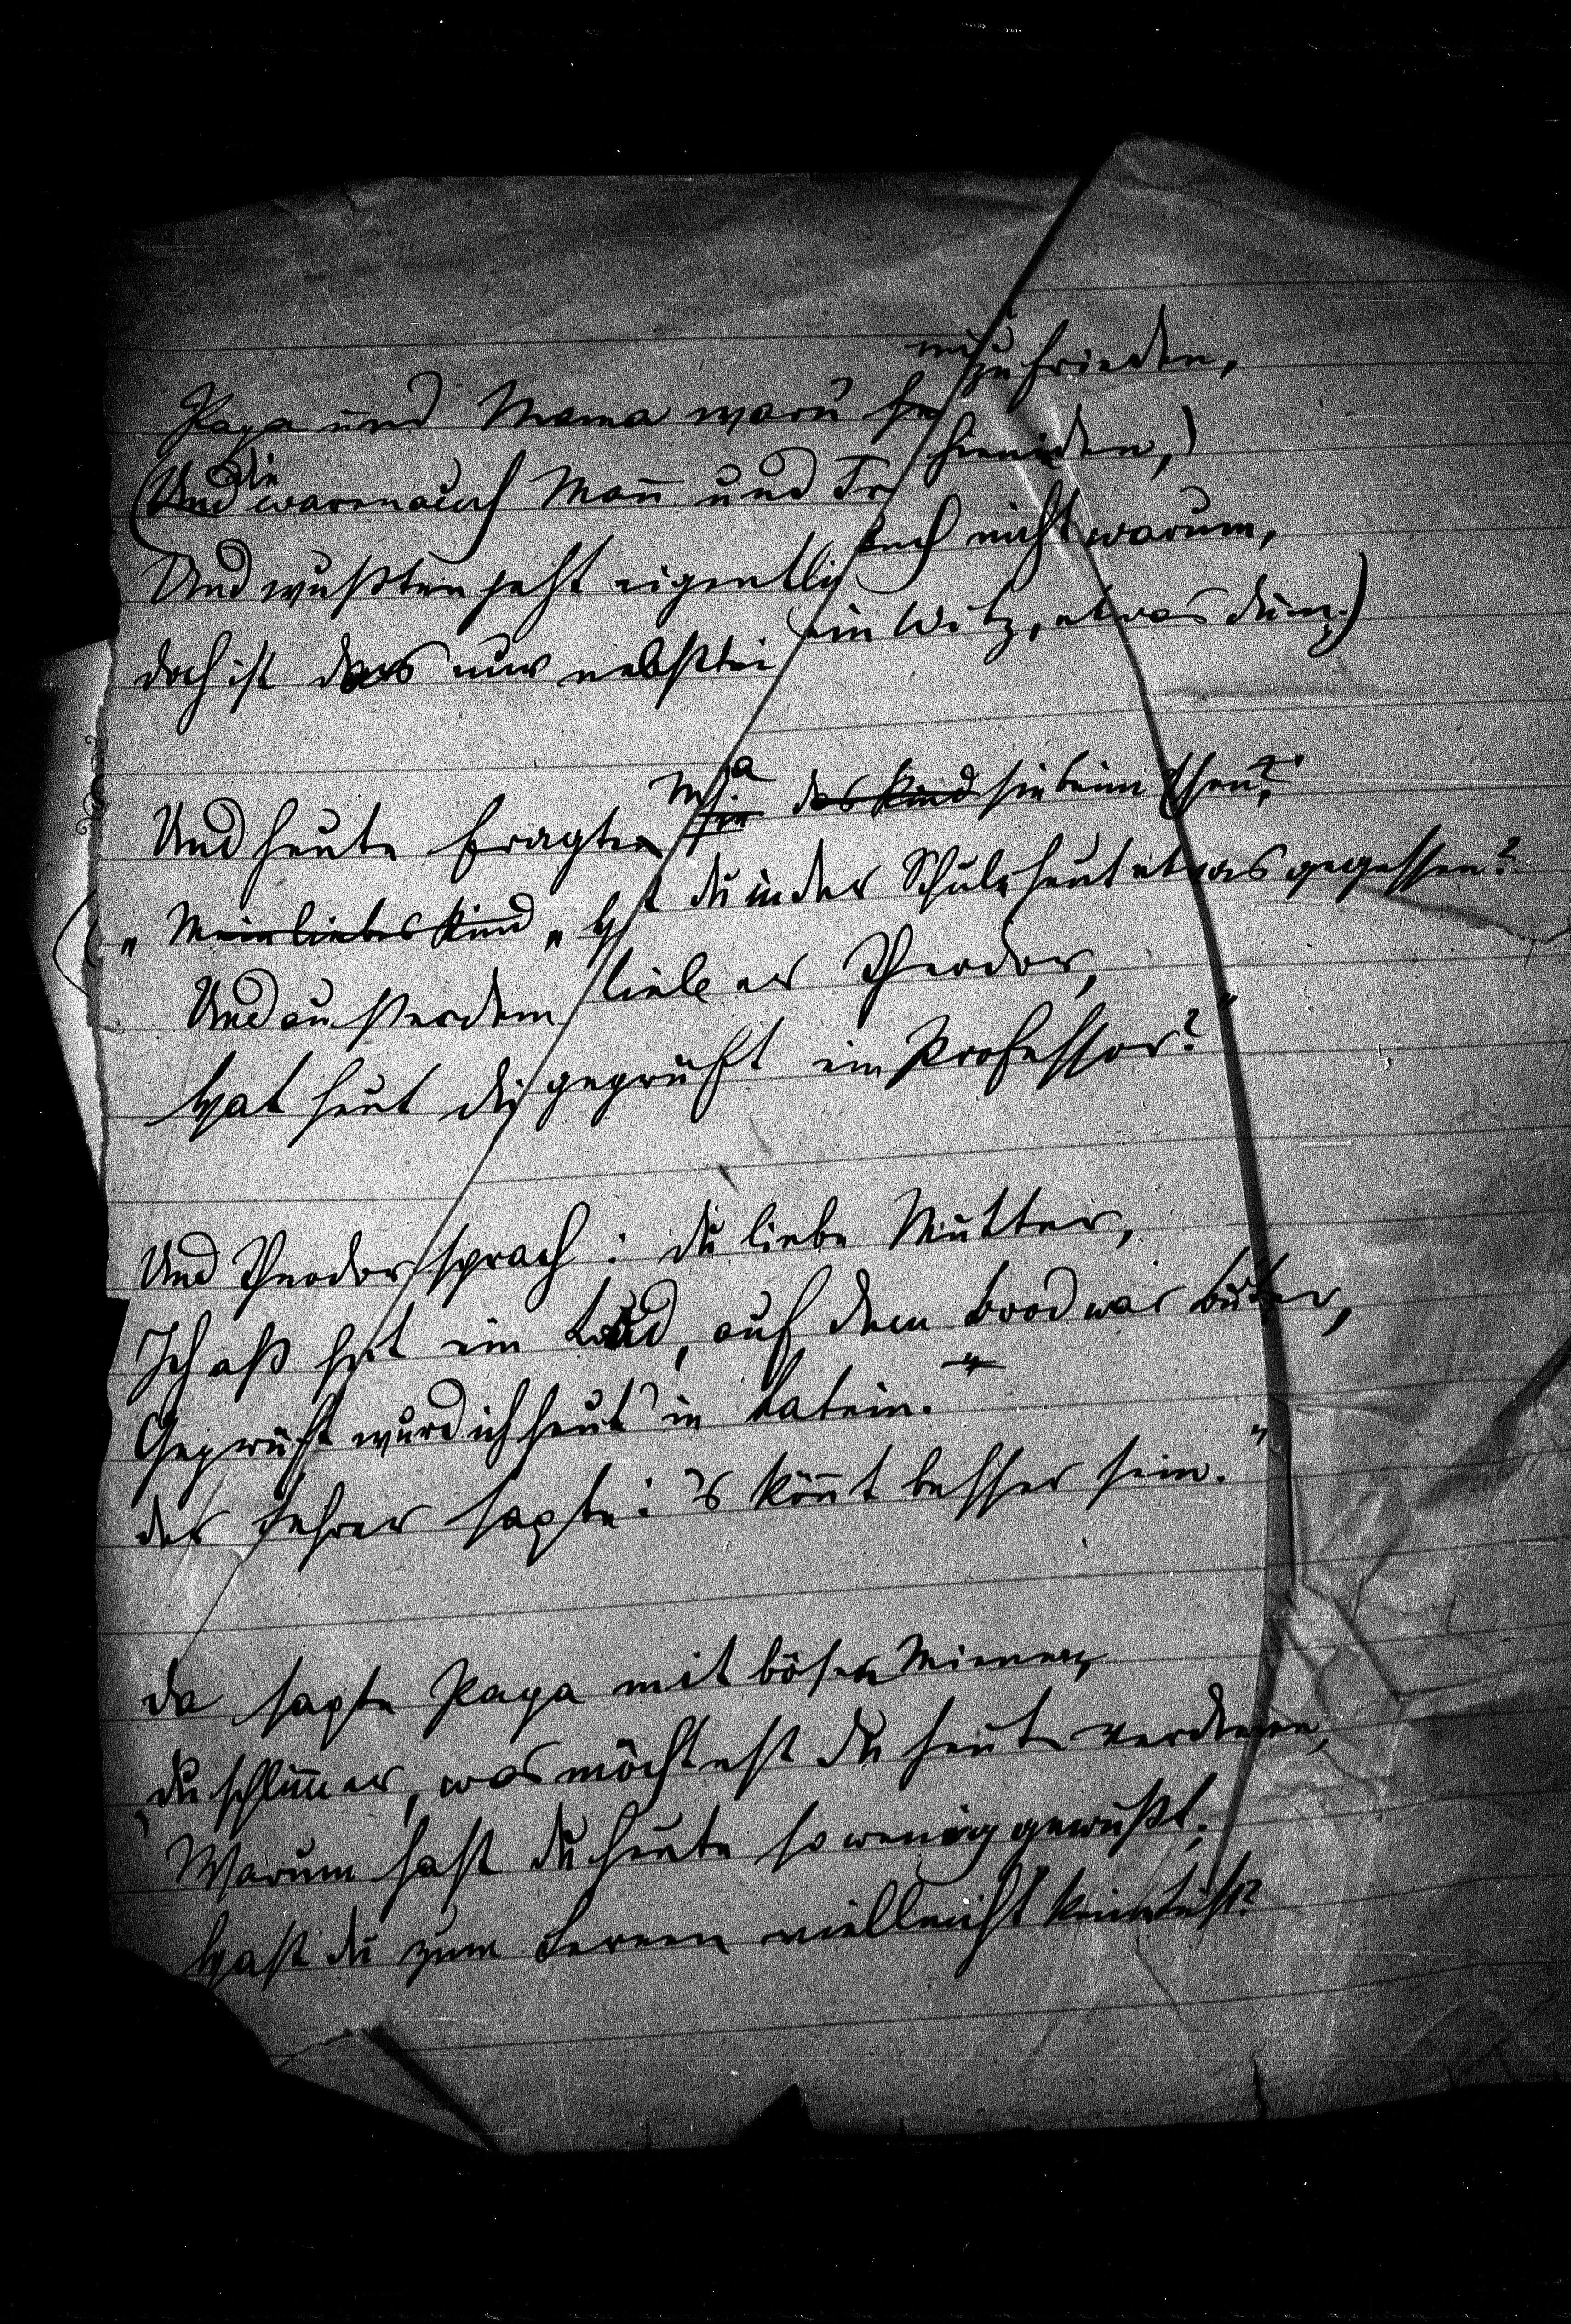 Papa und Mama warn se zufrieden,
(Und die waren auch Mann und Fr hienieden,)
Und wußten jetzt eigentlich auch nicht warum,
doch ist das nur nebstbei ein Witz, etwas dum.)
Und heute fragten sie das Kind sie beim Essen:
„Mein liebes Kind „Hast du in der Schule heut etwas gegessen?
Und außerdem lieber Theodor,
Hat heut dich geprüft ein Professor?"
Und Theodor sprach: du liebe Mutter,
Ich aß heut ein Brod, auf dem Brod war Buter,
Geprüft wurd ich heut in Latein."
der Lehrer sagte: 's könnt besser sein."
da sagte Papa mit bösen Mienen,
„du schlimmer, was möchtest du heute verdienen,
Warum hast du heute so wenig gewußt.
Hast du zum Lernen vielleicht keine Lust?